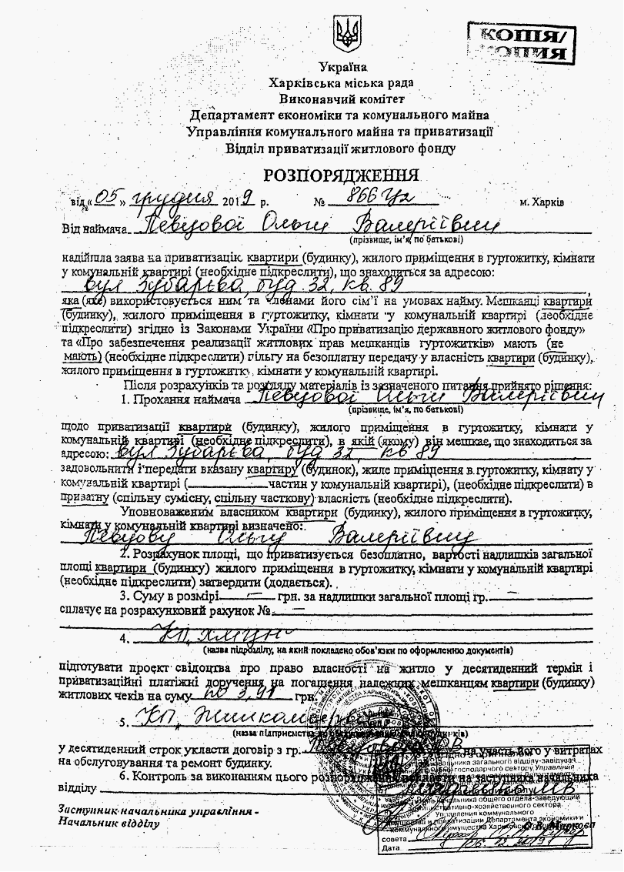 КОПІЯ/
КОПИЯ
Україна
Харківська міська рада
Виконавчий комітет
Департамент економіки та комунального майна
Управління комунального майна та приватизації
Відділ приватизації житлового фонду
РОЗПОРЯДЖЕННЯ
від «05» грудня 2019 р. № м. Харків
Від наймача Певцової Ольги Валеріївни
(прізвище, ім'я, по батькові)
надійшла заява на приватизацію квартири (будинку), жилого приміщення в гуртожитку, кімнати
у комунальній квартирі (необхідне підкреслити), що знаходиться за адресою:
вул Зубарєва, буд. 32, кв. 89
яка (яке) використовується ним та членами його сім'ї на умовах найму. Мешканці квартири
(будинку), жилого приміщення в гуртожитку, кімнати у комунальній квартирі (необхідне
підкреслити) згідно із Законами України «Про приватизацію державного житлового фонду»
та «Про забезпечення реалізації житлових прав мешканців гуртожитків» мають (не
мають) (необхідне підкреслити) пільгу на безоплатну передачу у власність квартири (будинку),
жилого приміщення в гуртожитку, кімнати у комунальній квартирі.
Після розрахунків та розгляду матеріалів із зазначеного питання прийнято рішення:
1. Прохання наймача Певцової Ольги Валеріївни
(прізвище, ім'я, по батькові)
щодо приватизації квартири (будинку), жилого приміщення в гуртожитку, кімнати у
комунальній квартирі (необхідне підкреслити), в якій (якому) він мешкає, що знаходиться за
адресою: вул Зубарєва буд 32 кв 89
задовольнити і передати вказану квартиру (будинок), жиле приміщення в гуртожитку, кімнату у
комунальній квартирі ( частин у комунальній квартирі), (необхідне підкреслити) в
приватну (спільну сумісну, спільну часткову) власність (необхідне підкреслити).
Уповноваженим власником квартири (будинку), жилого приміщення в гуртожитку,
кімнати у комунальній квартирі визначено:
Певцову Ольгу Валеріївну
2. Розрахунок площі, що приватизується безоплатно, вартості надлишків загальної
площі квартири (будинку) жилого приміщення в гуртожитку, кімнати у комунальній квартирі
(необхідне підкреслити) затвердити (додається).
3. Суму в розмірі — грн. за надлишки загальної площі гр. —
сплачує на розрахунковий рахунок № —
4. КП
(назва підрозділу, на який покладено обов'язки по оформленню документів)
підготувати проект свідоцтва про право власності на житло у десятиденний термін і
приватизаційні платіжні доручення на погашення належних мешканцям квартири (будинку)
житлових чеків на суму по 3,91 грн.
5. КП
(назва підприємства
у десятиденний строк укласти договір з гр. на участь його у витратах
на обслуговування та ремонт будинку.
6. Контроль за виконанням цього на заступника начальника
відділу
Заступник начальника управління -
Начальник відділу
совета
Дата